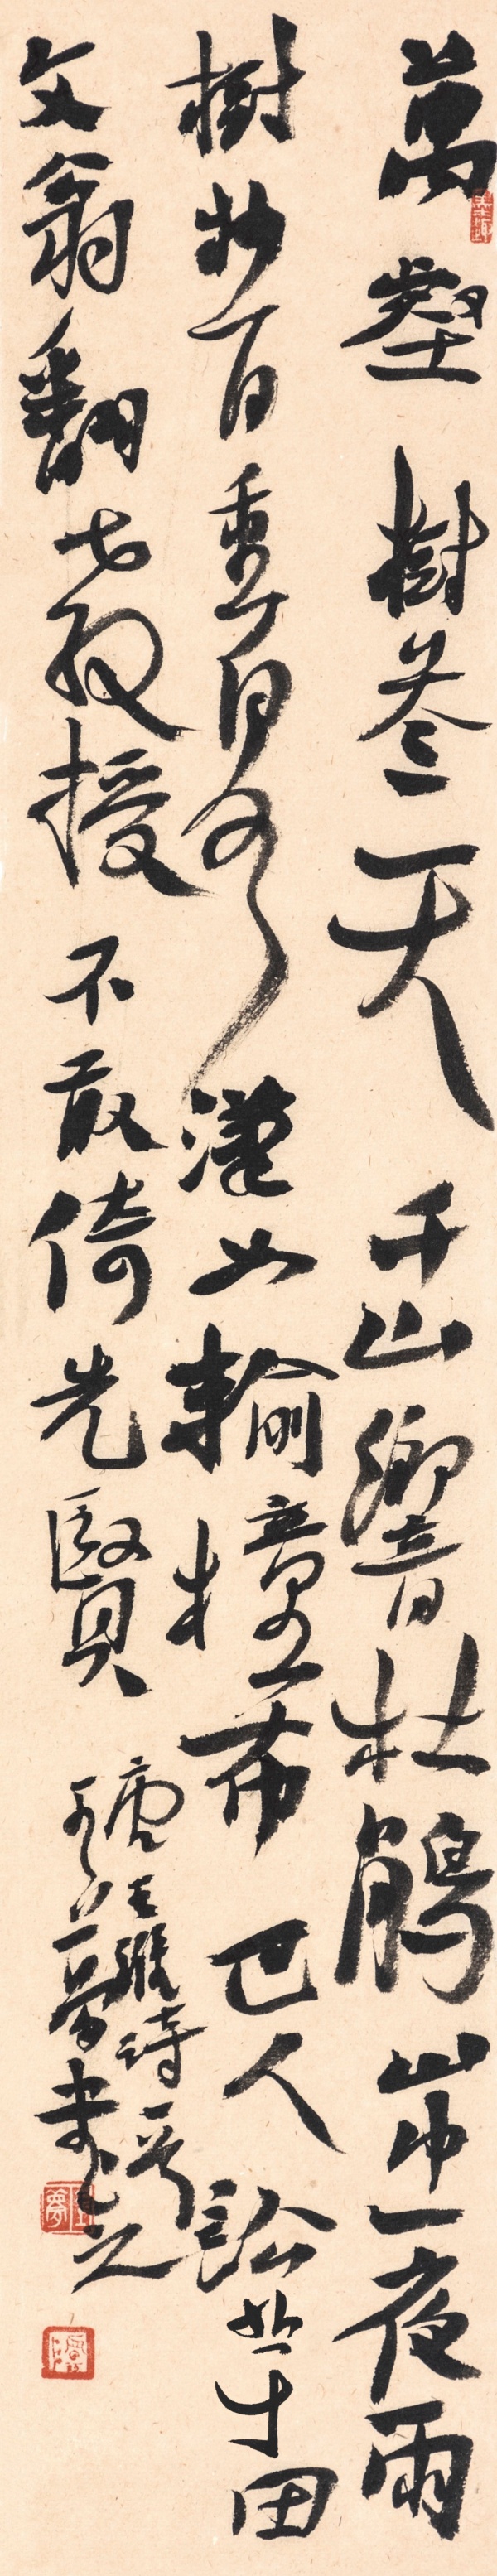 萬壑樹參天千山響杜鵑山中一夜雨
樹杪百重泉漢女輸橦布巴人訟芋田
文翁翻教授不敢倚先賢
唐王維詩一首
夢書之